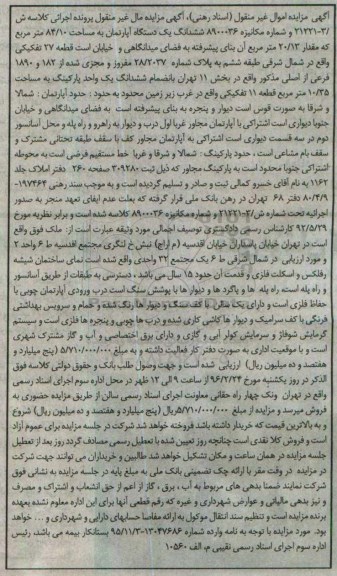 آگهی مزایده اموال غیر منقول (اسناد رهنی)، آگهی مزایده مال غیر منقول پرونده اجرائی کلاسه ش
/۲۱۲۲۱-۳ و شماره مکانیزه ۸۹۰۰۰۳۶ ششدانگ یک دستگاه آپارتمان به مساحت ۸۴/۱۰ متر مربع
که مقدار ۲۰/۱۲ متر مربع آن بنای پیشرفته به فضای میدانگاهی و خیابان است قطعه ۲۷ تفکیکی
واقع در شمال شرقی طبقه ششم به پلاک شماره ۲۸/۲۰۳۷ مفروز و مجزی شده از ۱۸۲ و ۱۸۹۰
فرعی از اصلی مذکور واقع در بخش ۱۱ تهران بانضمام ششدانگ یک واحد پارکینگ به مساحت
۱۰/۳۵ متر مربع قطعه ۱۱ تفکیکی واقع در غرب زیر زمین محدود به حدود : حدود آپارتمان : شمالا
و شرقا به صورت قوس است دیوار و پنجره به بنای پیشرفته است به فضای میدانگاهی و خیابان
جنوبا دیواری است اشتراکی با آپارتمان مجاور غربا اول درب و دیوار به راهرو و راه پله و محل آسانسور
دوم در سه قسمت دیواری است اشتراکی به آپارتمان مجاور کف با سقف طبقه تحتانی مشترک و
سقف بام مشاعی است ، حدود پارکینگ : شمالا و شرقا و غربا خط مستقیم فرضی است به محوطه
اشتراکی جنوبا محدود است به پارکینگ مجاور که ذیل ثبت ۳۰۹۲۸۰ صفحه ۲۶۰ دفتر املاک جلد
۱۱۶۲ به نام آقای خسرو کمالی ثبت و صادر و تسلیم گردیده است و به موجب سند رهنی ۱۹۷۴۶۴-
۸۰/۴/۹ دفتر ۶۸ تهران در رهن بانک ملی قرار گرفته که بعلت عدم ایفای تعهد منجر به صدور
اجرائیه تحت شماره ش/۲۱۲۲۱-۳ و شماره مکانیزه ۸۹۰۰۰۳۶ کلاسه شده است و برابر نظریه مورخ
۹۲/۵/۲۹ کارشناس رسمی دادگستری توصیف اجمالی مورد وثیقه عبارت است از: ملک فوق واقع
است در تهران خیابان پاسداران خیابان اقدسیه (م اراج) نبش خ لنگری مجتمع اقدسیه ط ۶ واحد ۲
و مورد ارزیابی در شمال شرقی ط ۶ یک مجتمع ۳۲ واحدی واقع شده است نمای ساختمان شیشه
رفلکس و اسکلت فلزی و قدمت آن حدود ۱۵ سال می باشد ، دسترسی به طبقات از طریق آسانسور
و راه پله است، راه پله ها و پاگرد ها و دیوار ها با پوشش سنگ است درب ورودی آپارتمان چوبی با
حفاظ فلزی است و دارای یک سالن با کف سنگ و دیوار ها رنگ شده و حمام و سرویس بهداشتی
فرنگی با کف سرامیک و دیوار ها کاشی کاری شده و درب ها چوبی و پنجره ها فلزی است و سیستم
گرمایش شوفاژ و سرمایش کولر آبی و گازی و دارای برق اختصاصی و آب و گاز مشترک شهری
است و با موقعیت اداری به صورت دفتر کار فعالیت داشته و به مبلغ ۵/۷۱۰/۰۰۰/۰۰۰ (پنج میلیارد و
هفتصد و ده میلیون ریال) ارزیابی شده است و جهت وصول طلب بانک و حقوق دولتی کلاسه فوق
الذکر در روز یکشنبه مورخ ۹۶/۲/۲۴ از ساعت ۹ الی ۱۲ ظهر در محل اداره سوم اجرای اسناد رسمی
واقع در تهران ونک چهار راه حقانی معاونت اجرای اسناد رسمی سالن از طریق مزایده حضوری به
فروش میرسد و مزایده از مبلغ ۵/۷۱۰/۰۰۰/۰۰۰ریال (پنج میلیارد و هفتصد و ده میلیون ریال) شروع
و به بالاترین قیمت که خریدار داشته باشد فروخته خواهد شد شرکت در جلسه مزایده برای عموم آزاد
است و فروش کلا نقدی است چنانچه روز تعیین شده با تعطیل رسمی مصادف گردد روز بعد از تعطیل
جلسه مزایده در همان ساعت و مکان تشکیل خواهد شد طالبین و خریداران می توانند جهت شرکت
در مزایده در وقت مقرر با ارائه چک تضمینی بانک ملی به مبلغ پایه در جلسه مزایده به نشانی فوق
شرکت نمایند ضمنا بدهی های مربوط به آب ، برق ، گاز از اعم از حق انشعاب و اشتراک و مصرف
و نیز بدهی مالیاتی و عوارض شهرداری و غیره که رقم قطعی آنها برای این اداره معلوم نشده بعهده
برنده مزایده است و تنظیم سند انتقال موکول به ارائه مفاصا حسابهای دارایی و شهرداری و ... خواهد
بود. مورد مزایده با توجه به نامه وارده شماره ۱۳۰۴۷۶۸۶-۹۵/۱۱/۳ بستانکار بیمه می باشد، رئیس
اداره سوم اجرای اسناد رسمی نقیبی م، الف ۱۰۵۶۰